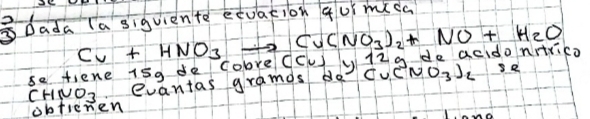 3 Dada la siguiente ecuación química
Cu + HNO3 → Cu(NO3)2 + NO + H2O
se tiene 15g de cobre (Cu) y 12g de acido nitrico
CHNO3. Cuantas gramos de Cu(NO3)2 se
obtienen